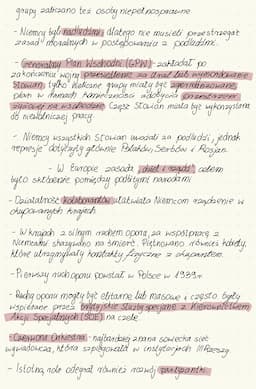 grupy zaliczano też osoby niepełnosprawne
- Niemcy byli nadludźmi dlatego nie musieli przestrzegać
zasad moralnych w postępowaniu z podludźmi.
- Generalny Plan Wschodni (GPW) - zakładał po
zakończeniu wojny przesiedlenie za Ural lub wymordowanie
Słowian, tylko nieliczne grupy miały być zgermanizowane,
plan w ramach konieczności zdobycia przestrzeni
życiowej na wschodzie. Część Słowian miała być wykorzystana
do niewolniczej pracy.
- Niemcy wszystkich Słowian uważali za podludzi, jednak
represje dotyczyły głównie Polaków, Serbów i Rosjan.
- W Europie zasada "dziel i rządź", celem
było skłócenie pomiędzy podbitymi narodami
- Działalność kolaborantów ułatwiała Niemcom rządzenie w
okupowanych krajach.
- W krajach z silnym ruchem oporu, za współpracę z
Niemcami skazywano na śmierć. Piętnowano również kobiety,
które utrzymywały kontakty fizyczne z okupantem.
- Pierwszy ruch oporu powstał w Polsce w 1939r.
- Ruchy oporu mogły być elitarne lub masowe i często były
wspierane przez brytyjskie służby specjalne z Kierownictwem
Akcji Specjalnych (SOE) na czele
- Czerwona Orkiestra - najbardziej znana sowiecka siatka
wywiadowcza, która szpiegowała w instytucjach III Rzeszy.
- Istotną rolę odegrał również rozwój partyzantki